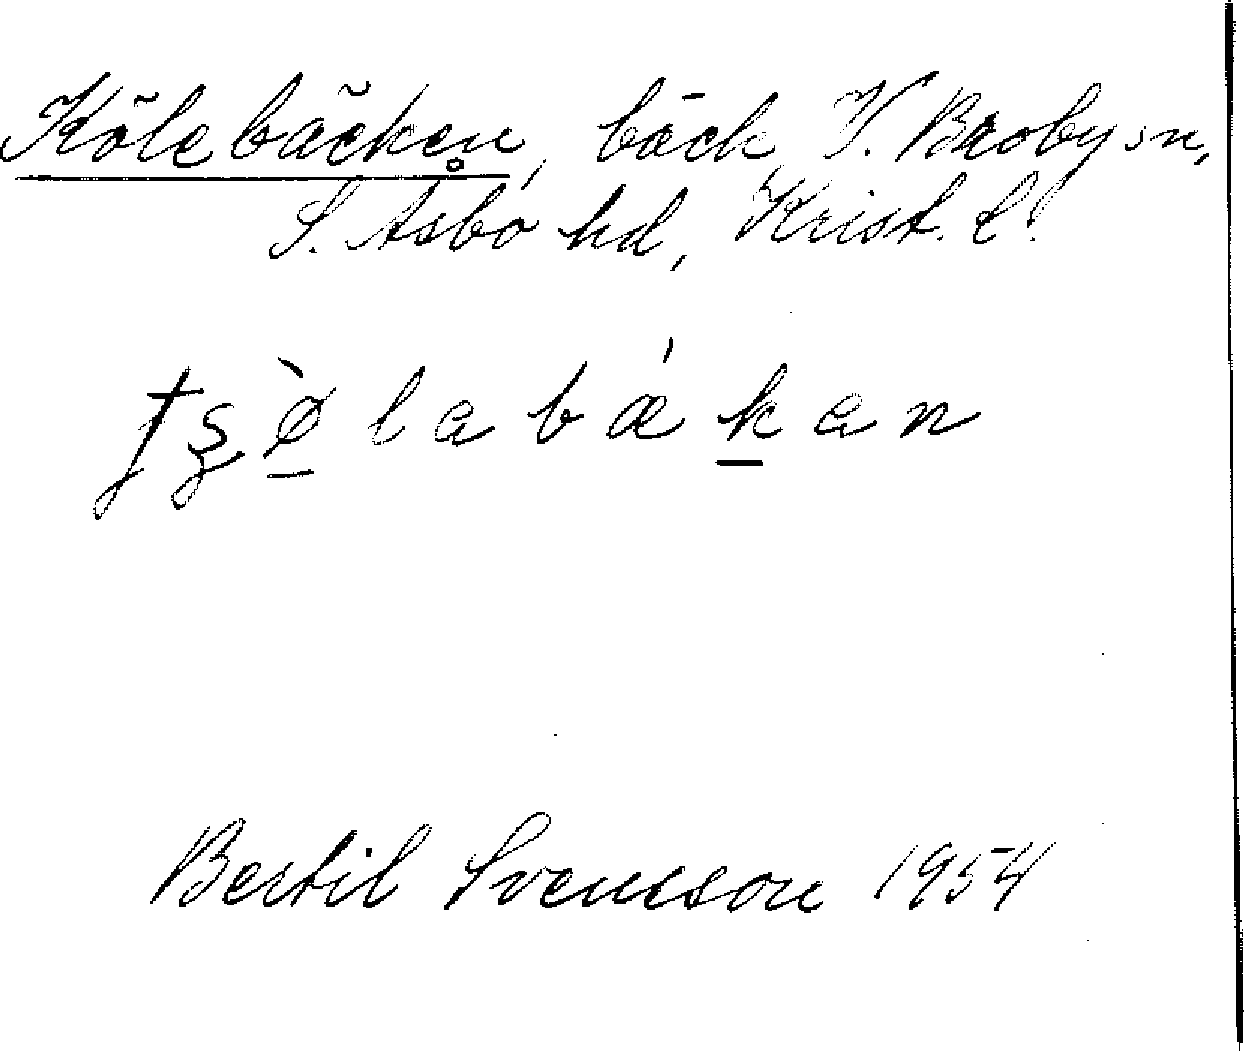 Kölebäcken, bäck, V. Broby sn,
S. Åsbo hd, Krist. l.
tʂø̠̀labǽk̠an
Bertil Svensson 1954